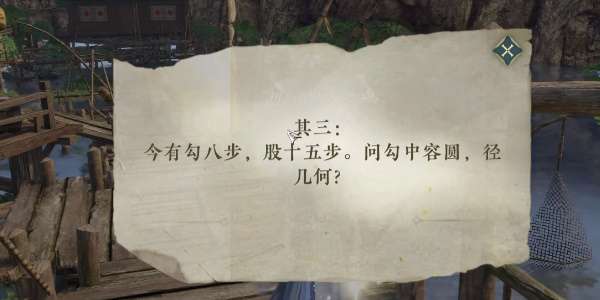 其三：
今有勾八步，股十五步。问勾中容圆，径
几何？